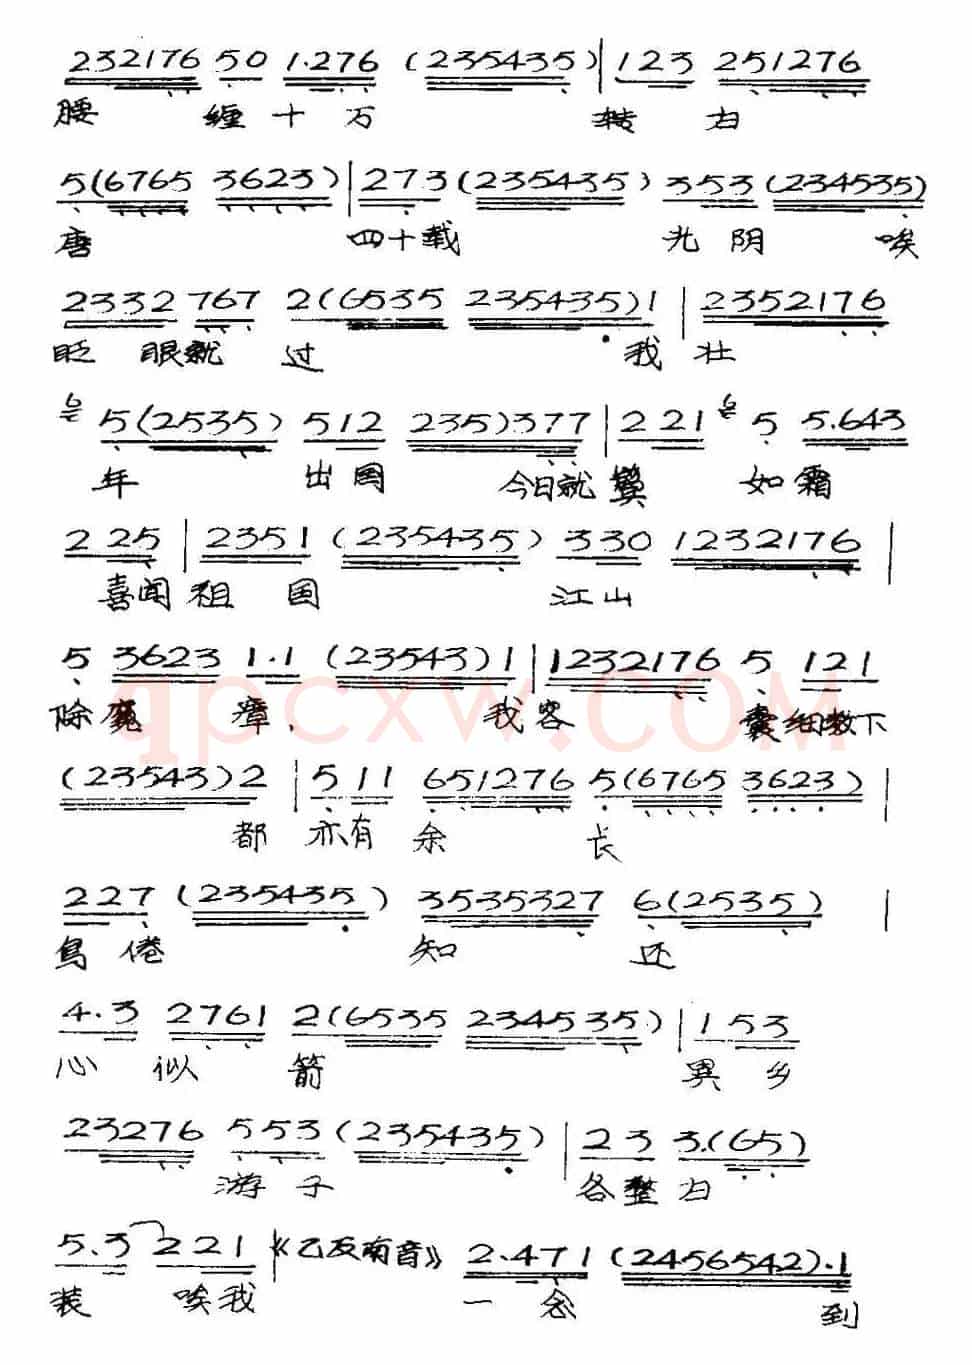 232176 50 1·276 (235435) | 123 251276
腰 缠 十 万 转 归
5(6765 3623) | 273 (235435) 353 (234535)
唐 四十载 光 阴 唉
2332 767 2(6535 235435)1 | 2352176
眨 眼就 过 我 壮
5(2535) 512 235)377 | 2 21 5 5.643
年 出国 今日就鬓 如霜
2 25 | 2351 (235435) 330 1232176 |
喜闻祖 国 江山
5 3623 1·1 (23543)1 | 1232176 5 121
除魔 瘴, 我客 囊细数下
(23543)2 | 511 651276 5(6765 3623) |
都 亦有 余 长
227 (235435) 3535327 6(2535) |
鸟 倦 知 还
4.3 2761 2(6535 234535) | 153
心 似 箭 異 乡
23276 553 (235435) | 23 3.(65)
游 子 各整归
5.3 221 |《乙反南音》 2.471 (2456542).1
装 唉我 一 念 到
qpcxw.COM